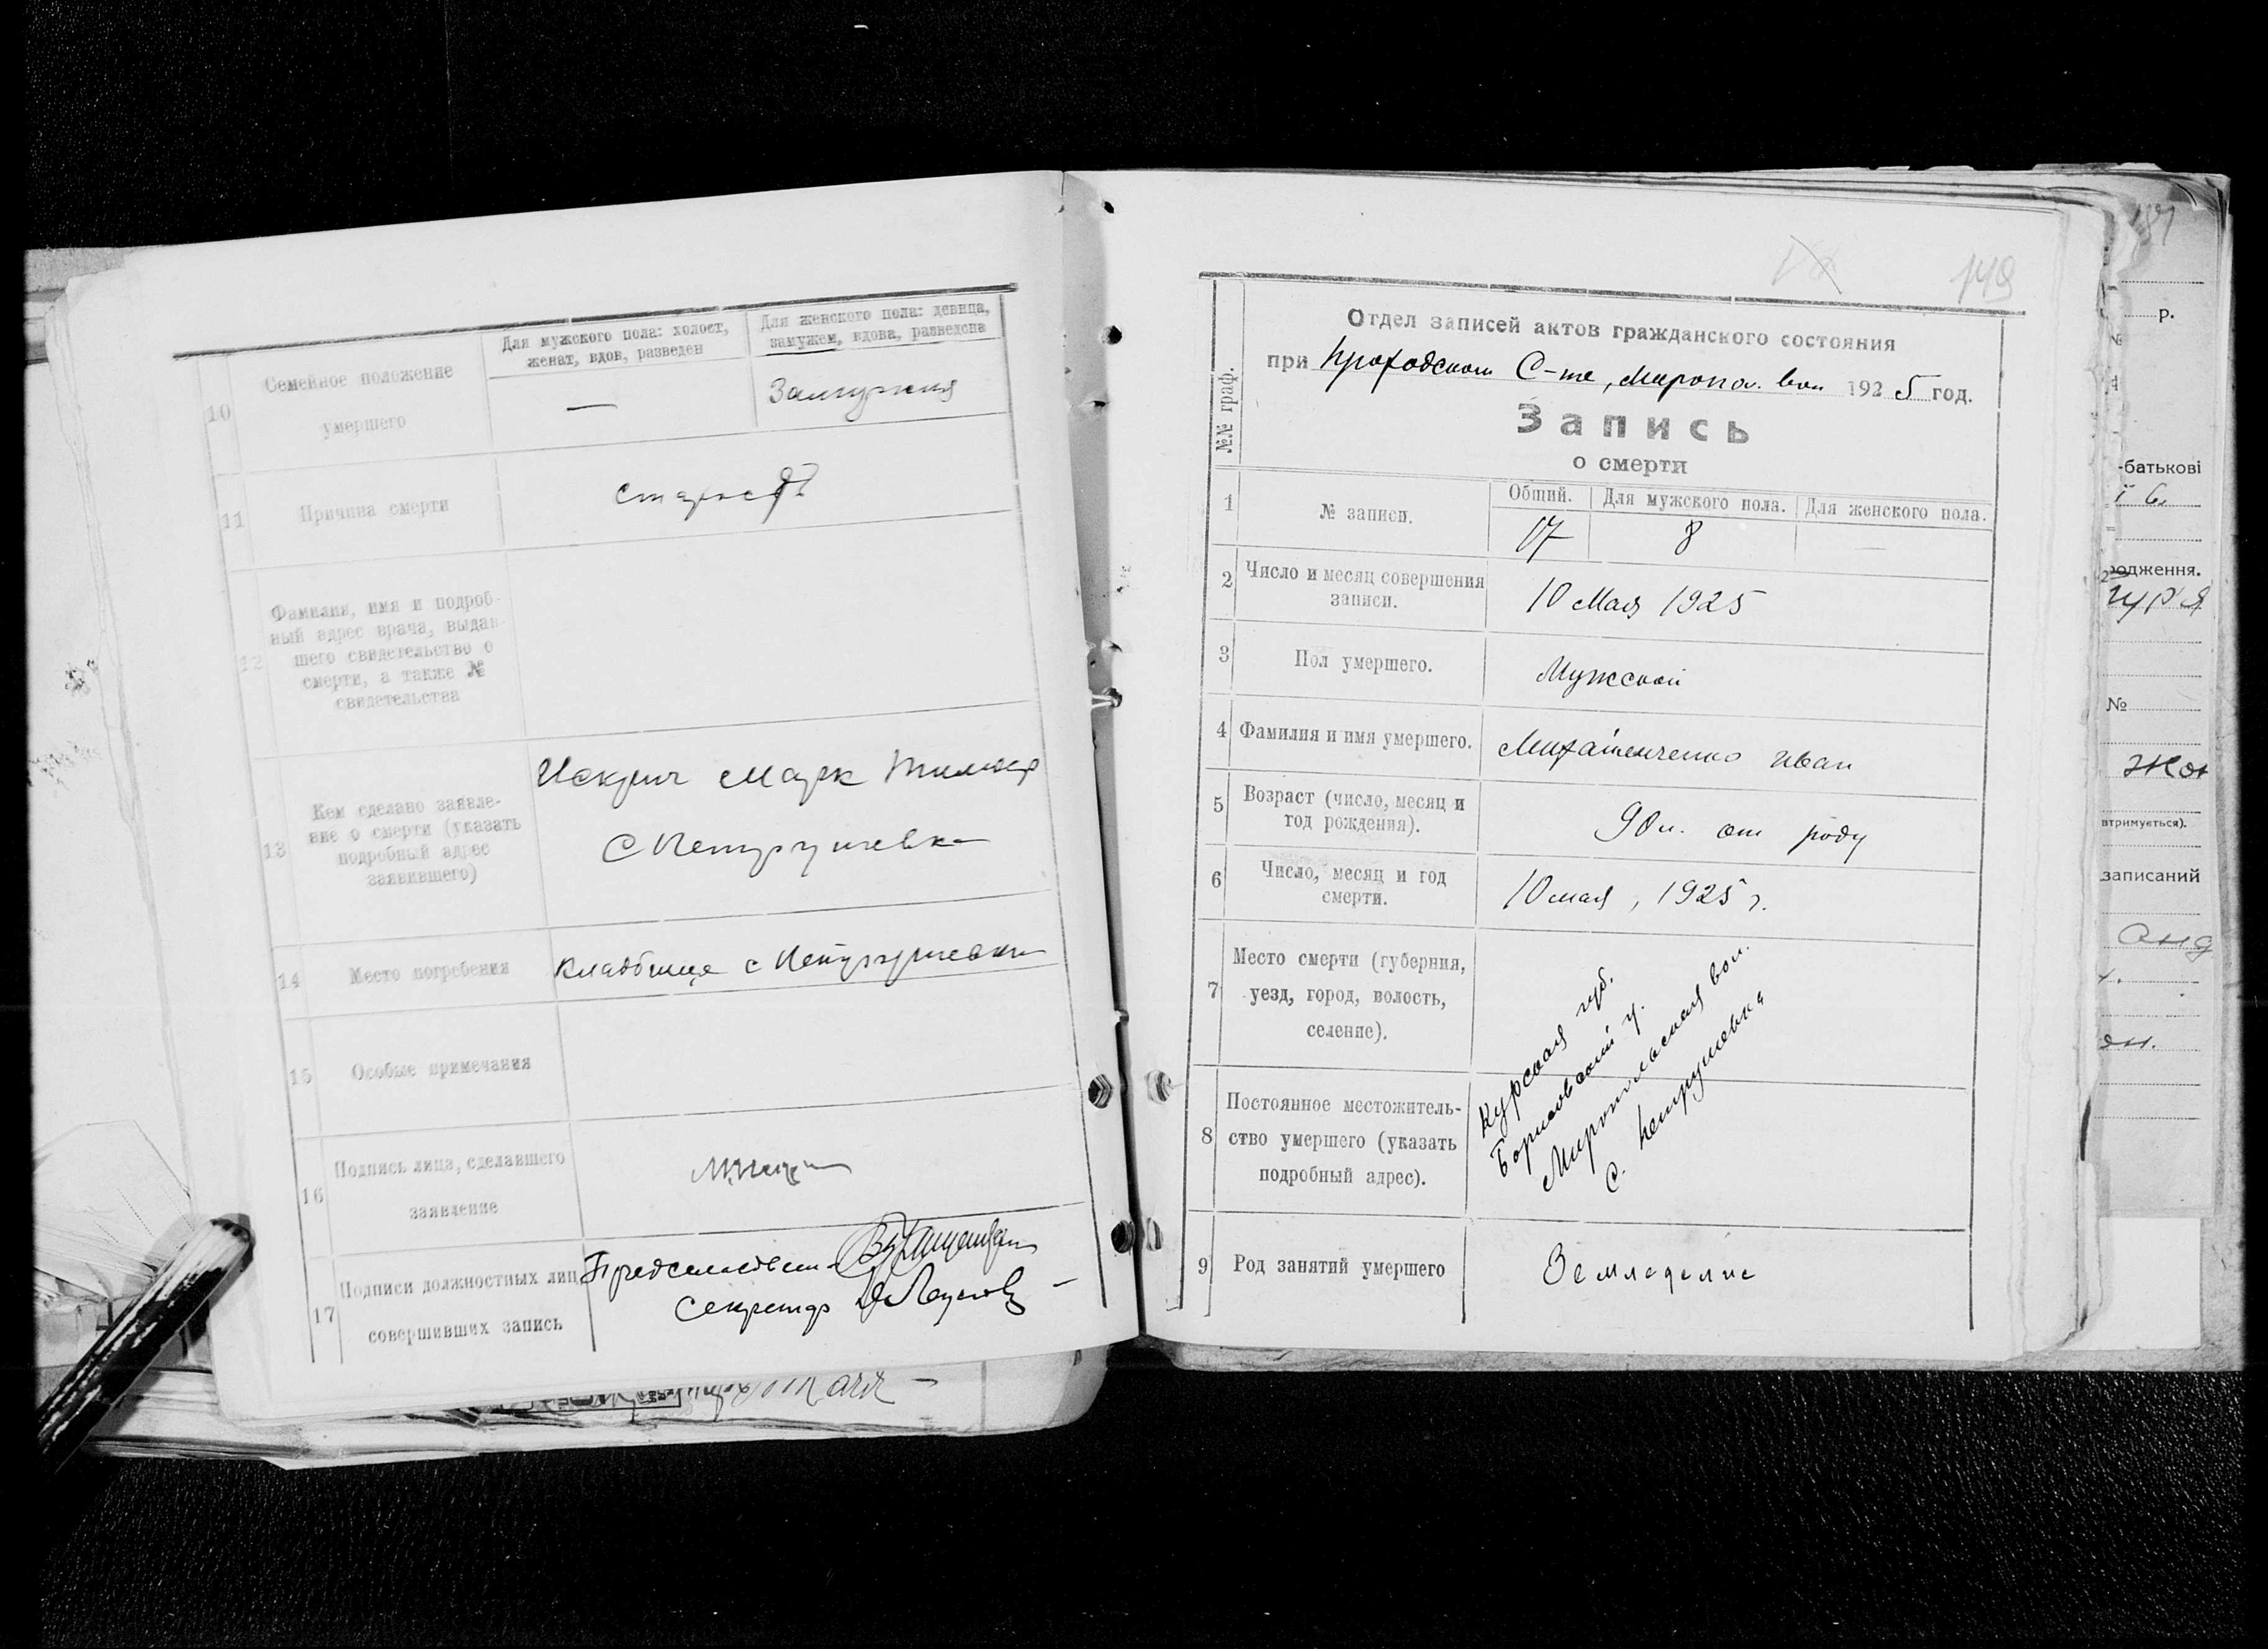 10
Семейное положение
умершего
Для мужского пола: холост,
женат, вдов, разведен
Для женского пола: девица,
замужем, вдова, разведена
—
Замужняя
11
Причина смерти
старость
12
Фамилия, имя и подроб-
ный адрес врача, выдав-
шего свидетельство о
смерти, а также №
свидетельства
13
Кем сделано заявле-
ние о смерти (указать
подробный адрес
заявившего)
Искрич Марк
с Петрушевка
14
Место погребения
Кладбище с Петрушевки
15
Особые примечания
16
Подпись лица, сделавшего
заявление
17
Подписи должностных лиц,
совершивших запись
Председатель
Секретарь
149
№№ граф.
Отдел записей актов гражданского состояния
при Проходском С-те, Миропол. вол 1925 год.
Запись
о смерти
1
№ записи.
Общий.
Для мужского пола.
Для женского пола.
17
8
—
2
Число и месяц совершения
записи.
10 Мая 1925
3
Пол умершего.
Мужской
4
Фамилия и имя умершего.
Иван
5
Возраст (число, месяц и
год рождения).
90 л. от роду
6
Число, месяц и год
смерти.
10 мая, 1925 г.
7
Место смерти (губерния,
уезд, город, волость,
селение).
8
Постоянное местожитель-
ство умершего (указать
подробный адрес).
Курская губ.
Борисовский у.
Миропольская вол.
с. Петрушевка
9
Род занятий умершего
Земледелие
р.
№
-батькові
родження.
№
втримується).
записаний